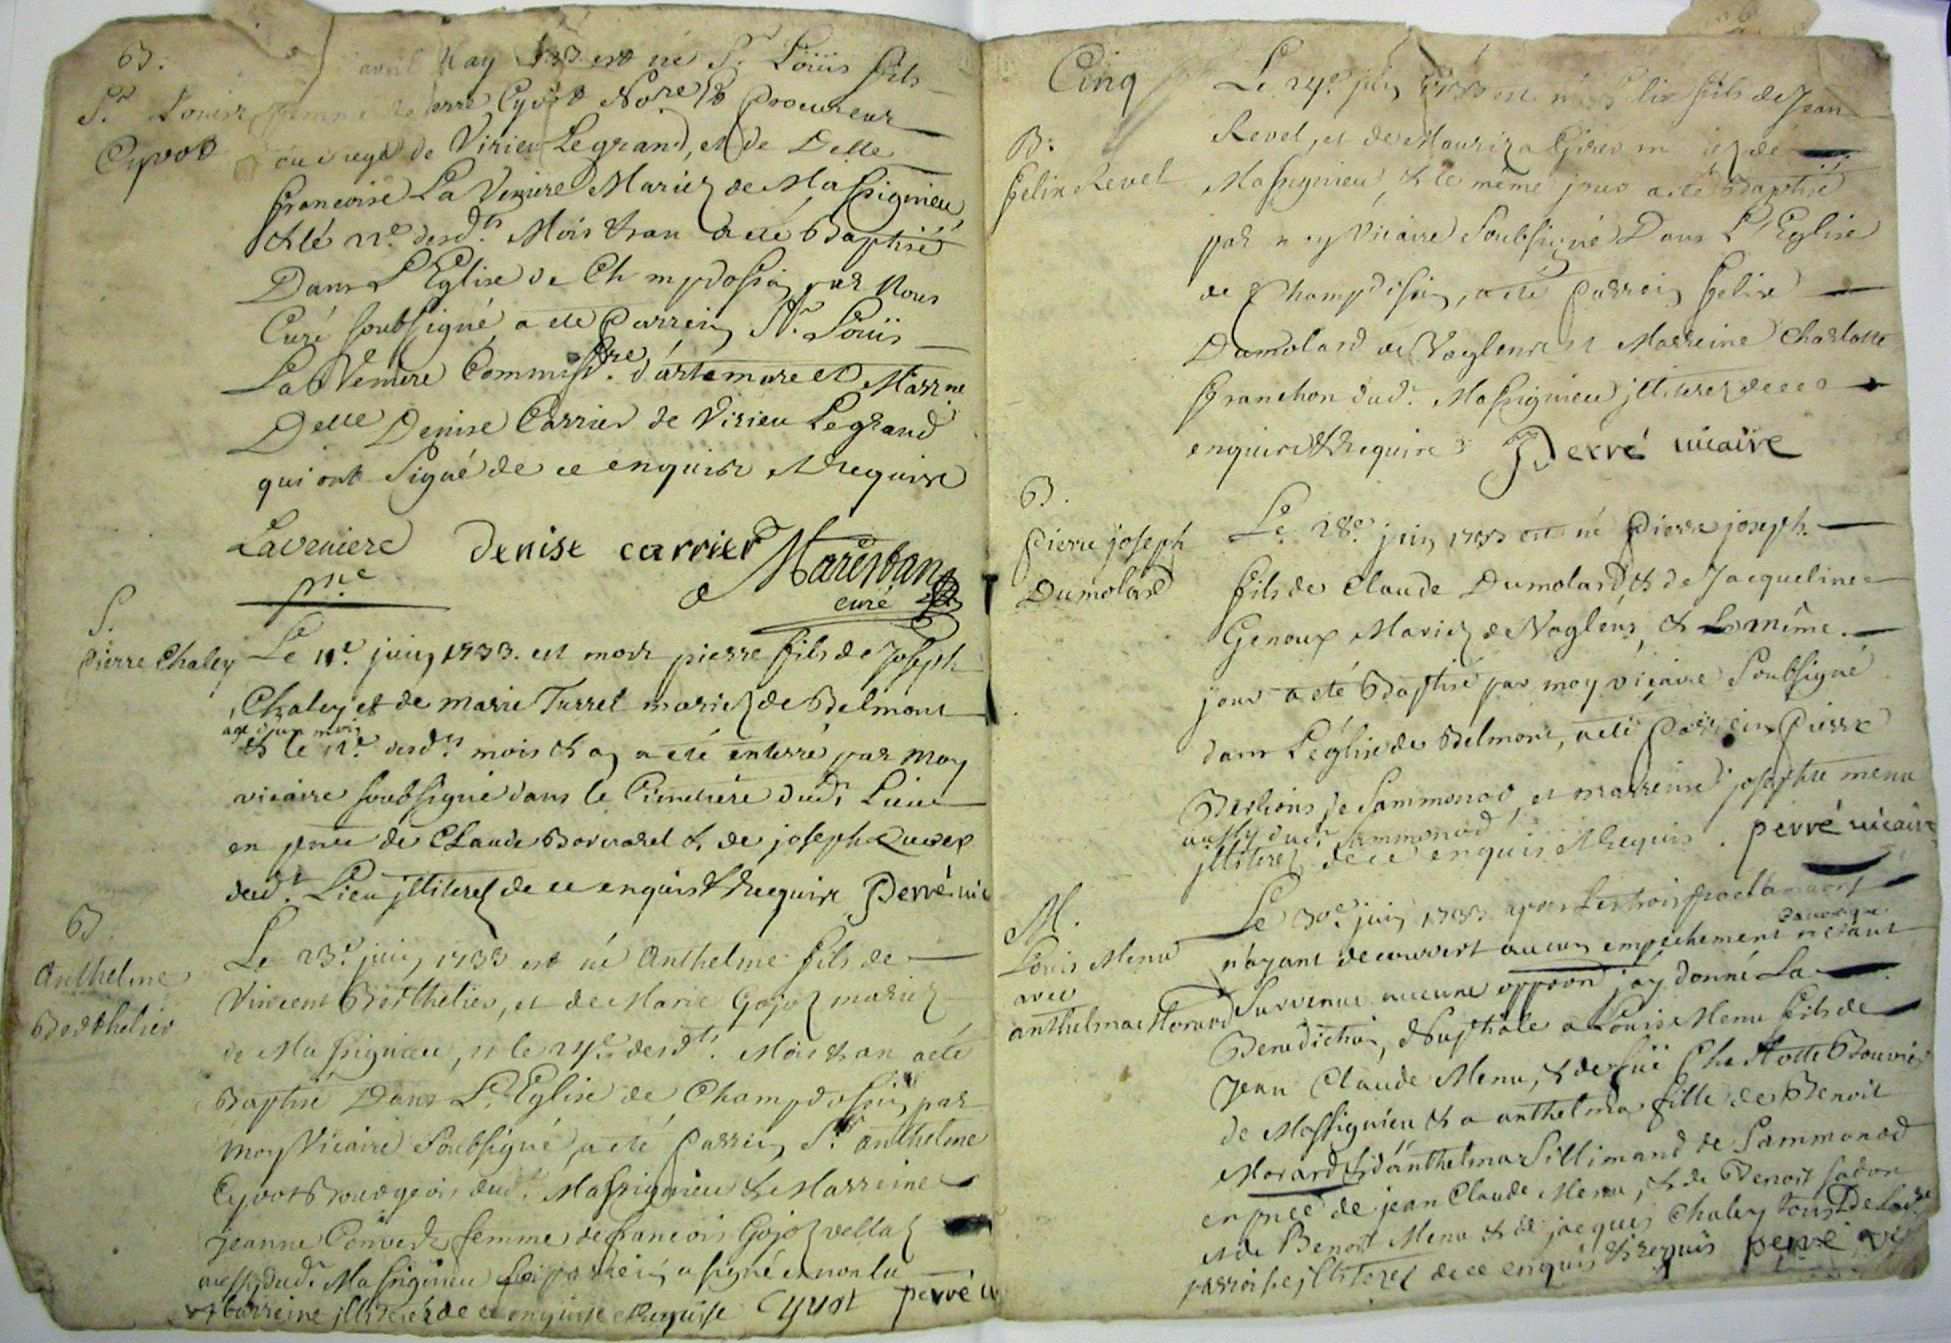 B.
Sr Louis
Cyvot
May 1733 est né Sr Loüis fils
Cyvot No.re & Procureur
de Virieu Legrand, et de Delle
francoise La Veniere Mariez de Massignieu
& le desdts Mois & an a été Baptisé
Dans L'Eglise de par Nous
Curé soubsigné, a été Parrein Sr. Loüis
La Veniere Commissre. d'artemare et Marrne
Delle Denise Carrier de Virieu Legrand
qui ont signé de ce enquise & requise
Laveniere denise carrier
pne
curé
S.
pierre Chaley
Le 11e. juin 1733. est mort pierre fils de Joseph
Chaley et de marie Turrel mariez de Belmont
& le 12e. desdts mois & an a été enterré par moy
vicaire soubsigné dans le Cimetiere dudt Lieu
en pnce de Claude & de joseph
dudt. Lieu jlliterez de ce enquis & requise Perré vic
B.
Anthelme
Berthelier
Le 23e. juin 1733 est né Anthelme fils de
Vincent Berthelier, et de Marie Gojoz mariez
de Massignieu, et le 24e. desdts. Mois & an a été
Baptisé Dans L'Eglise de Champdossin par
moy Vicaire Soubsigné, a été Parrein Sr. anthelme
Cyvot Bourgeois dudt. Massignieu & Marreine
jeanne femme de francois Gojoz vellaz
aussy dudt Massignieu le parrein a signé & non la
Marreine jllitereé de ce enquise & requise Cyvot perré
Cinq
B.
felix Revel
Le 24e. juin 1733 est né felix fils de Jean
Revel, et de Mauriza mariez de
Massignieu, & le même jour a été Baptisé
par moy Vicaire Soubsigné Dans L'Eglise
de Champdossin, a été Parrein felix
Dumolard de Voglens et Marreine Charlotte
franchon dudt. Massignieu jlliterez de ce
enquis & requise Perré vicaire
B.
Pierre joseph
Dumolard
Le 28e. juin 1733 est né Pierre joseph.
fils de Claude Dumolard & de Jacqueline
Genoux Mariez de Voglens, & Le même
jour a été Baptisé par moy vicaire Soubsigné
dans L'église de Belmont, a été Parrein Pierre
Berlions de Sammonod, et marreine josephte menu
aussy dudt. Sammonod
jlliterez de ce enquis & requis. perré vicaire
M.
Louis Menu
avec
anthelma Morard
Le 30e. juin 1733 apres Les trois proclamaons
n'ayant decouvert aucun empechement
Survenue aucune oppoon j'ay donné La
Benediction, Nuptiale a Loüis Menu fils de
Jean Claude Menu, & de füe Charlotte Bouvier
de Massignieu & a anthelma fille de Benoit
Morard & d'anthelma Sillimand de Sammonod
en pnce de jean Claude Menu, & de Benoit
et de Benoit Menu & de jacques Chaley tous De Lad.
parroisse jlliterez de ce enquis & requis perré